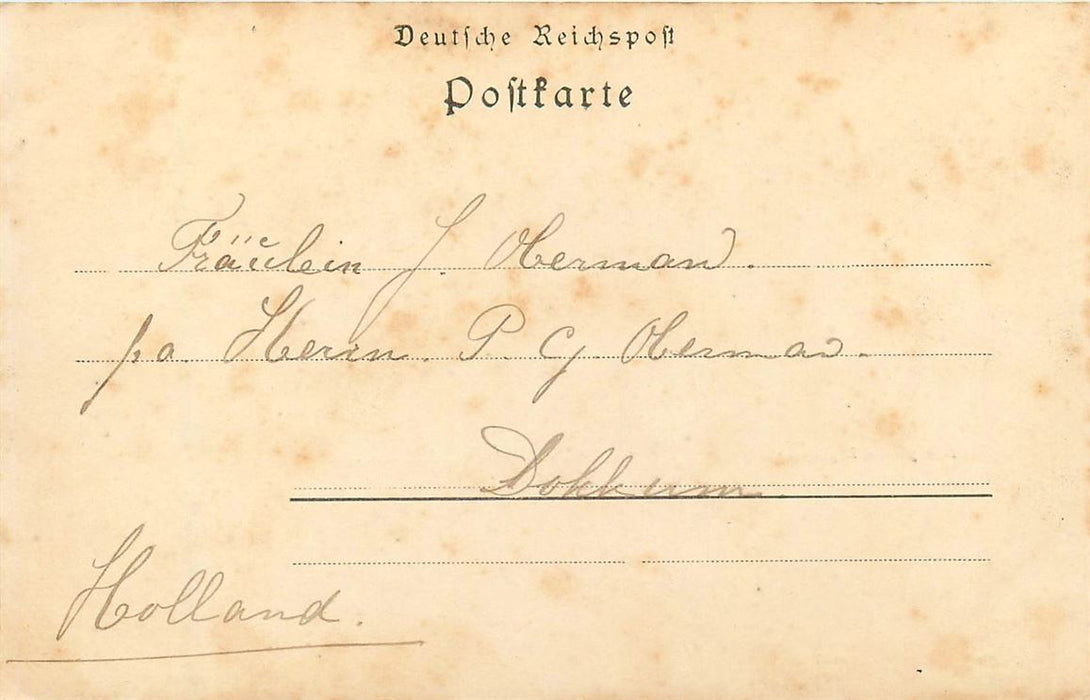 Deutsche Reichspost
Postkarte
Fräulein J. Oberman.
p.a. Herrn. P. G. Oberman.
Dokkum
Holland.